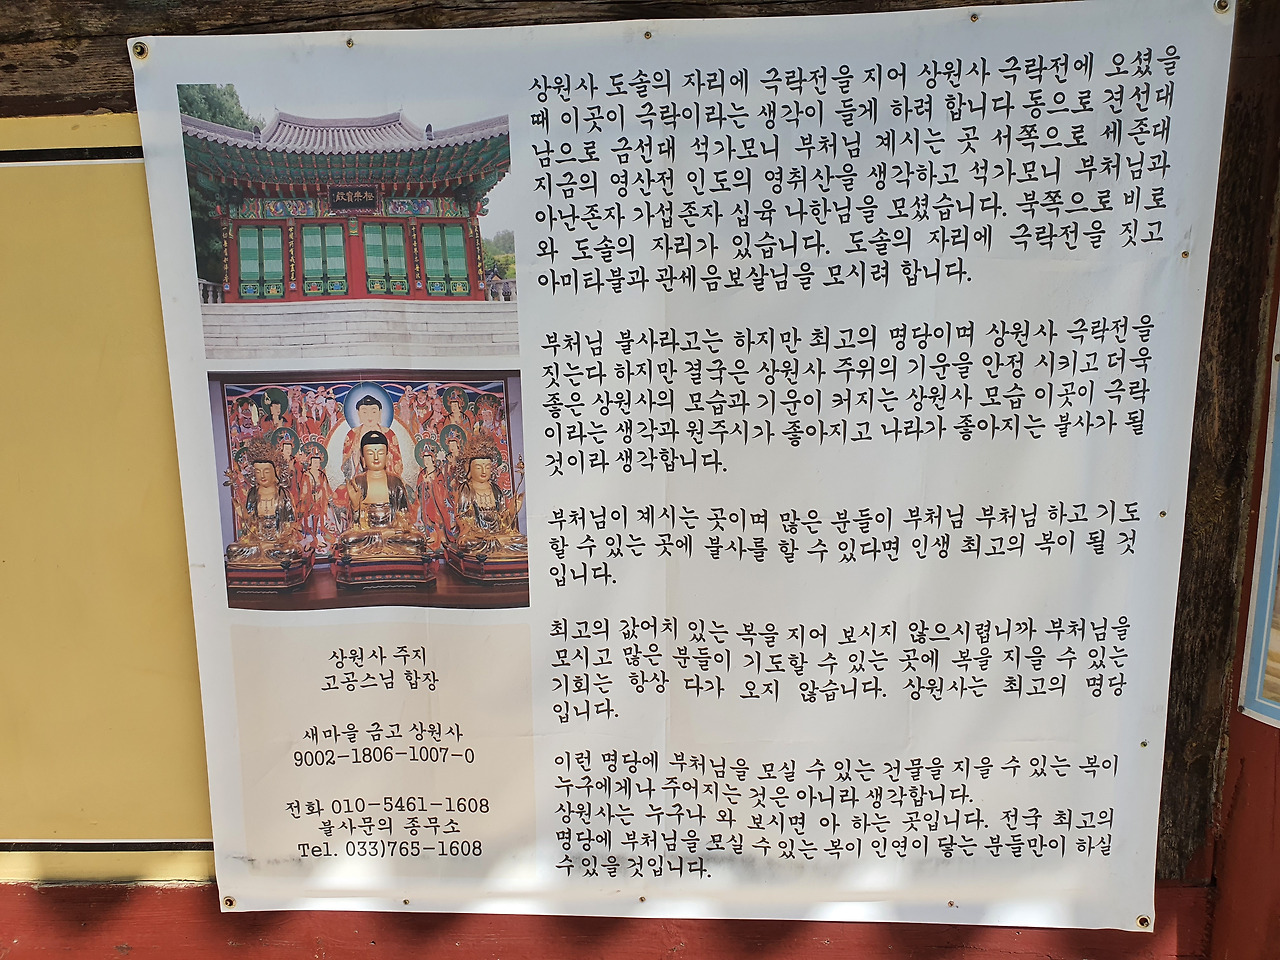 상원사 도솔의 자리에 극락전을 지어 상원사 극락전에 오셨을
때 이곳이 극락이라는 생각이 들게 하려 합니다 동으로 견선대
남으로 금선대 석가모니 부처님 계시는 곳 서쪽으로 세존대
지금의 영산전 인도의 영취산을 생각하고 석가모니 부처님과
아난존자 가섭존자 십육 나한님을 모셨습니다. 북쪽으로 비로
와 도솔의 자리가 있습니다. 도솔의 자리에 극락전을 짓고
아미타불과 관세음보살님을 모시려 합니다.
부처님 불사라고는 하지만 최고의 명당이며 상원사 극락전을
짓는다 하지만 결국은 상원사 주위의 기운을 안정 시키고 더욱
좋은 상원사의 모습과 기운이 커지는 상원사 모습 이곳이 극락
이라는 생각과 원주시가 좋아지고 나라가 좋아지는 불사가 될
것이라 생각합니다.
부처님이 계시는 곳이며 많은 분들이 부처님 부처님 하고 기도
할 수 있는 곳에 불사를 할 수 있다면 인생 최고의 복이 될 것
입니다.
최고의 값어치 있는 복을 지어 보시지 않으시렵니까 부처님을
모시고 많은 분들이 기도할 수 있는 곳에 복을 지을 수 있는
기회는 항상 다가 오지 않습니다. 상원사는 최고의 명당
입니다.
이런 명당에 부처님을 모실 수 있는 건물을 지을 수 있는 복이
누구에게나 주어지는 것은 아니라 생각합니다.
상원사는 누구나 와 보시면 아 하는 곳입니다. 전국 최고의
명당에 부처님을 모실 수 있는 복이 인연이 닿는 분들만이 하실
수 있을 것입니다.
極樂寶殿
상원사 주지
고공스님 합장
새마을 금고 상원사
9002-1806-1007-0
전화 010-5461-1608
불사문의 종무소
Tel. 033)765-1608